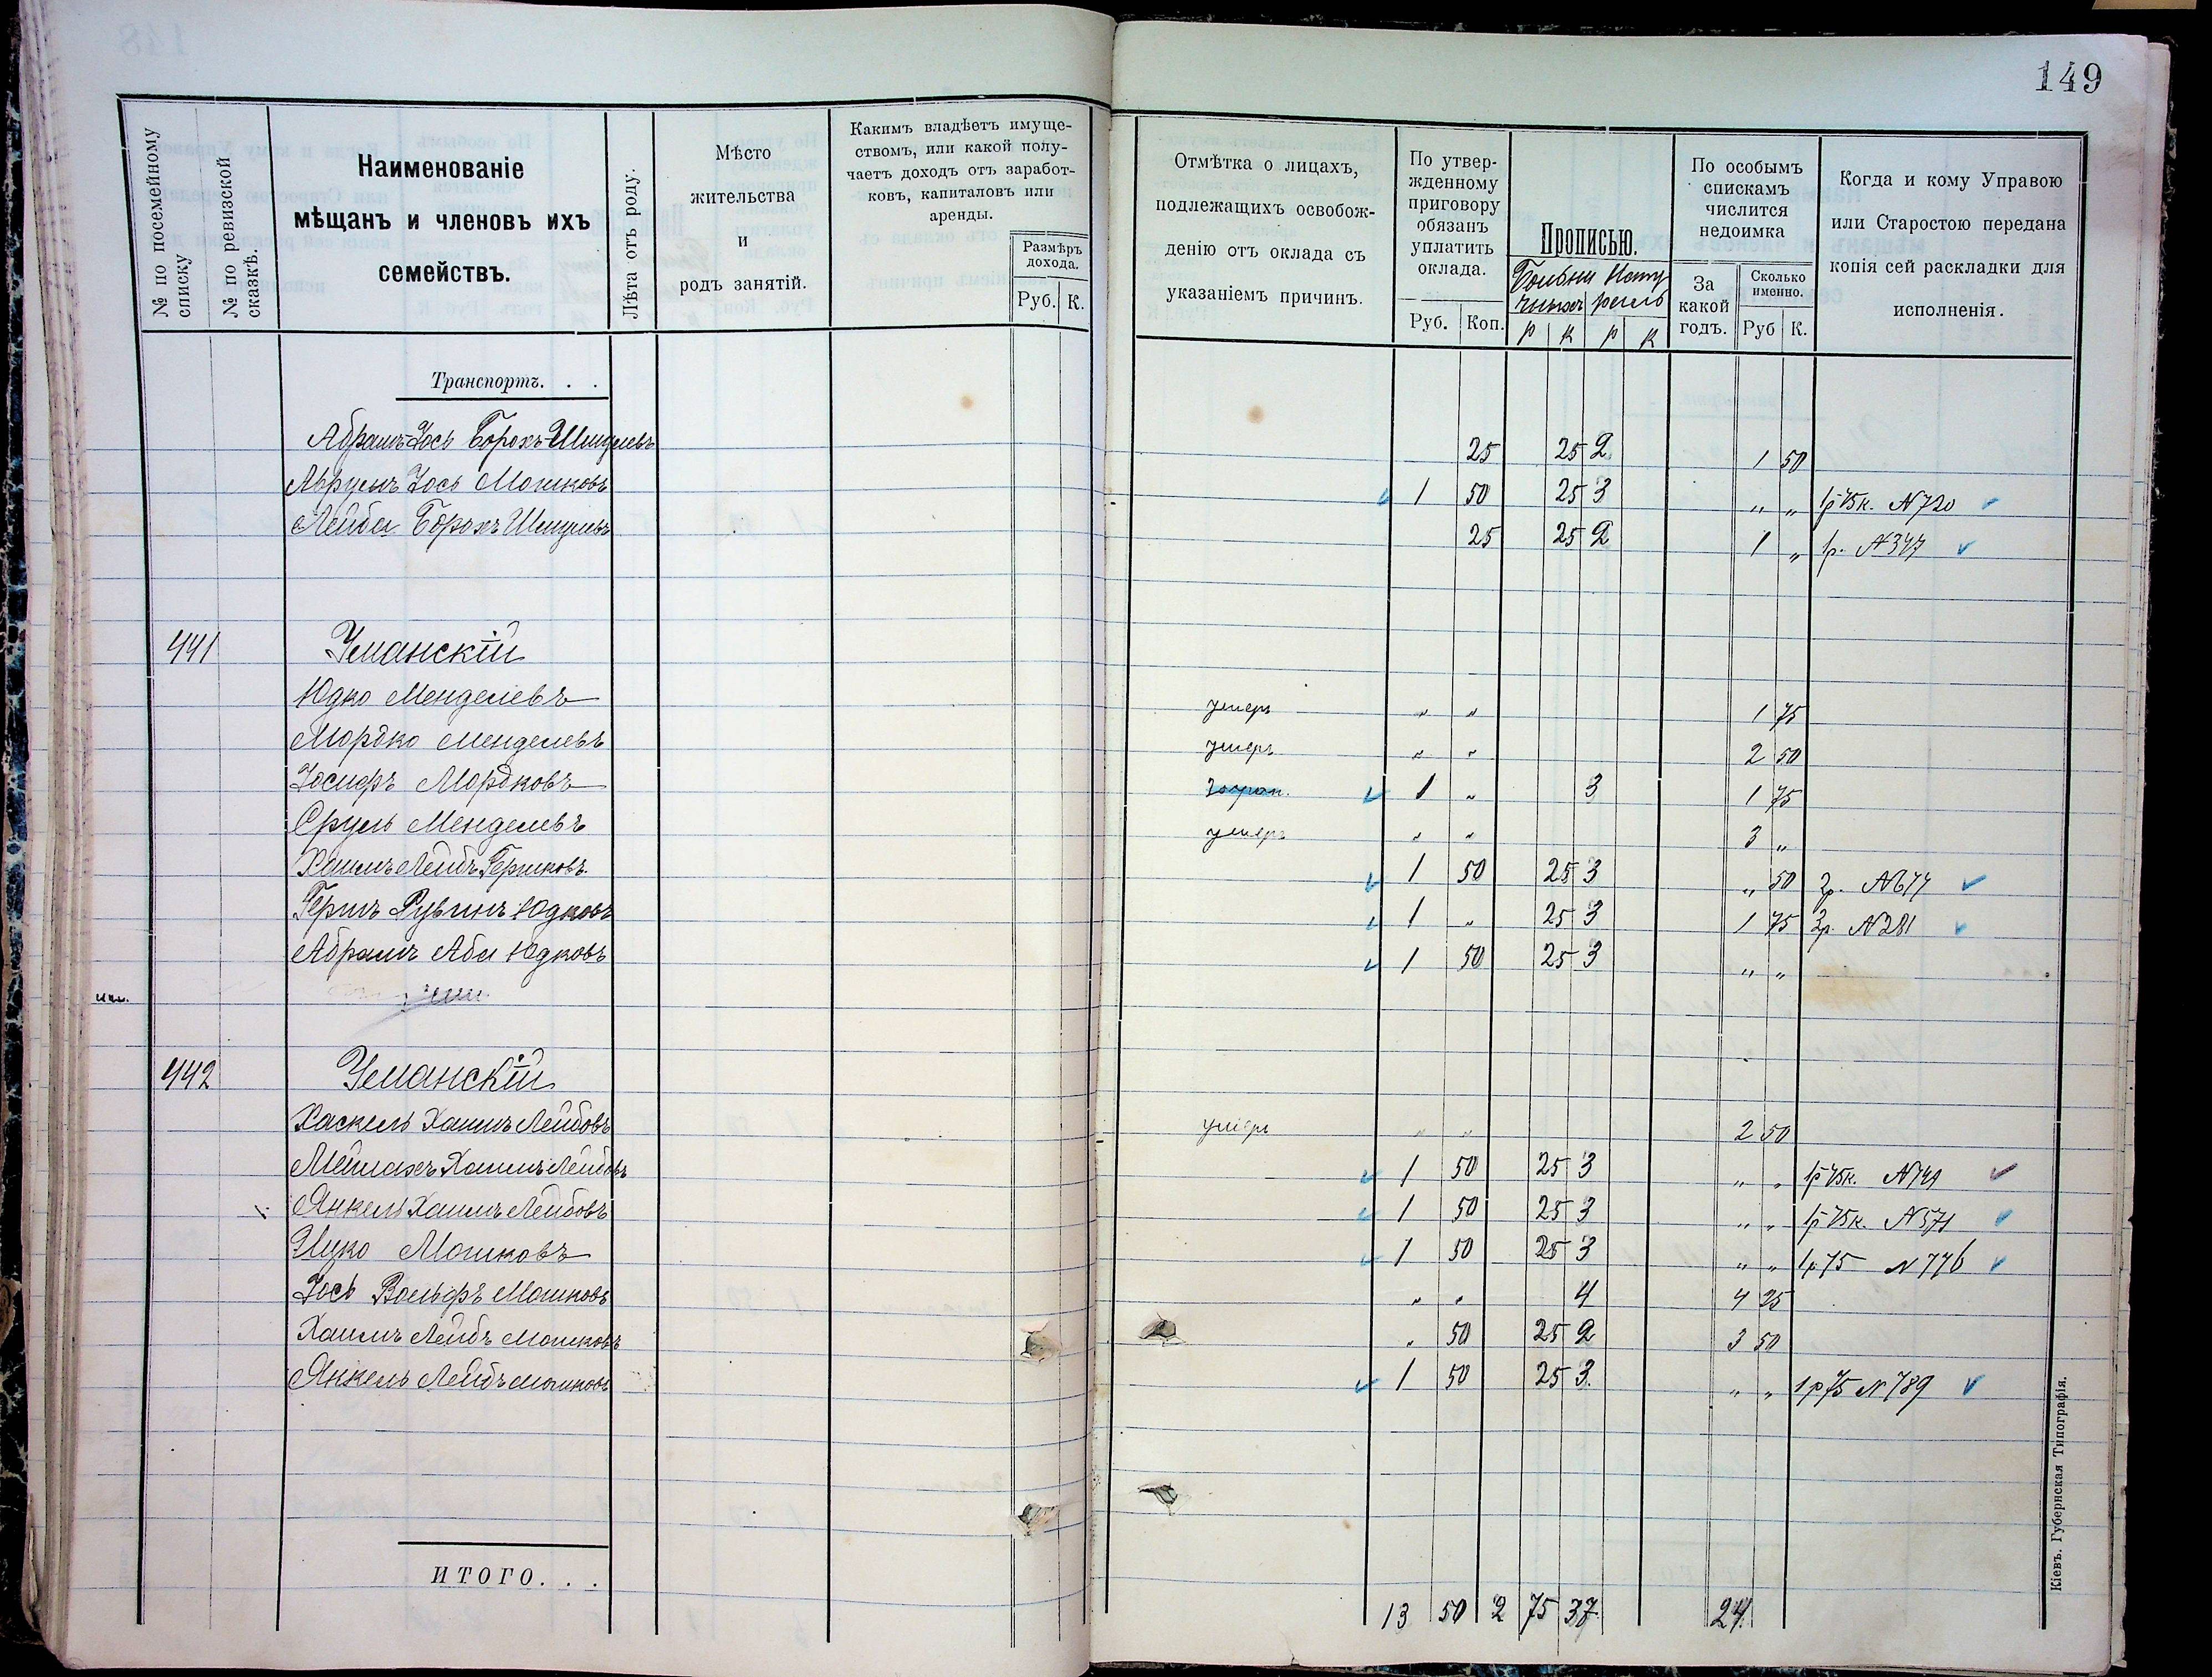 149
№ по посемейному списку
№ по ревизской сказкѣ.
Наименованіе
мѣщанъ и членовъ ихъ
семействъ.
Лѣта отъ роду.
Мѣсто
жительства
и
родъ занятій.
Какимъ владѣетъ имуще-
ствомъ, или какой полу-
чаетъ доходъ отъ заработ-
ковъ, капиталовъ или
аренды.
Размѣръ
дохода.
Руб. К.
Отмѣтка о лицахъ,
подлежащихъ освобож-
денію отъ оклада съ
указаніемъ причинъ.
По утвер-
жденному
приговору
обязанъ
уплатить
оклада.
Руб. Коп.
Прописью.
р к р к
По особымъ
спискамъ
числится
недоимка
За
какой
годъ.
Сколько
именно.
Руб К.
Когда и кому Управою
или Старостою передана
копія сей раскладки для
исполненія.
Транспортъ. . .
Абрамъ Іось Борохъ-Шмулевъ 25 25 2 1 50
Аврумъ Іось Мошковъ 1 50 25 3 " " 1р 75к. N 720
Лейба Борохъ Шмулевъ 25 25 2 1 " 1р. N 347
441 Уманскій
Юдко Менделевъ умеръ " " 1 75
Мордко Менделевъ умеръ " " 2 50
Іосифъ Мордковъ 1 " 3 1 75
Сруль Менделевъ умеръ " " 3 "
Хаимъ Лейбъ Гершковъ. 1 50 25 3 " 50 2р. N 674
Гершъ Рувинъ Юдковъ 1 " 25 3 1 75 3р. N 281
Абрамъ Аба Юдковъ 1 50 25 3 " "
442 Уманскій
Хаскель Хаимъ Лейбовъ умеръ " " 2 50
Меилахъ Хаимъ Лейбовъ 1 50 25 3 " " 1р 75к. N 749
Янкель Хаимъ Лейбовъ 1 50 25 3 " " 1р 75к. N 571
Ицко Мошковъ 1 50 25 3 " " 1р 75 N 776
Іось Вольфъ Мошковъ " " 4 4 25
Хаимъ Лейбъ Мошковъ " 50 25 2 3 50
Янкель Лейбъ Мошковъ 1 50 25 3. " " 1р 75 N 789
ИТОГО. . . 13 50 2 75 37 24
Кіевъ. Губернская Типографія.